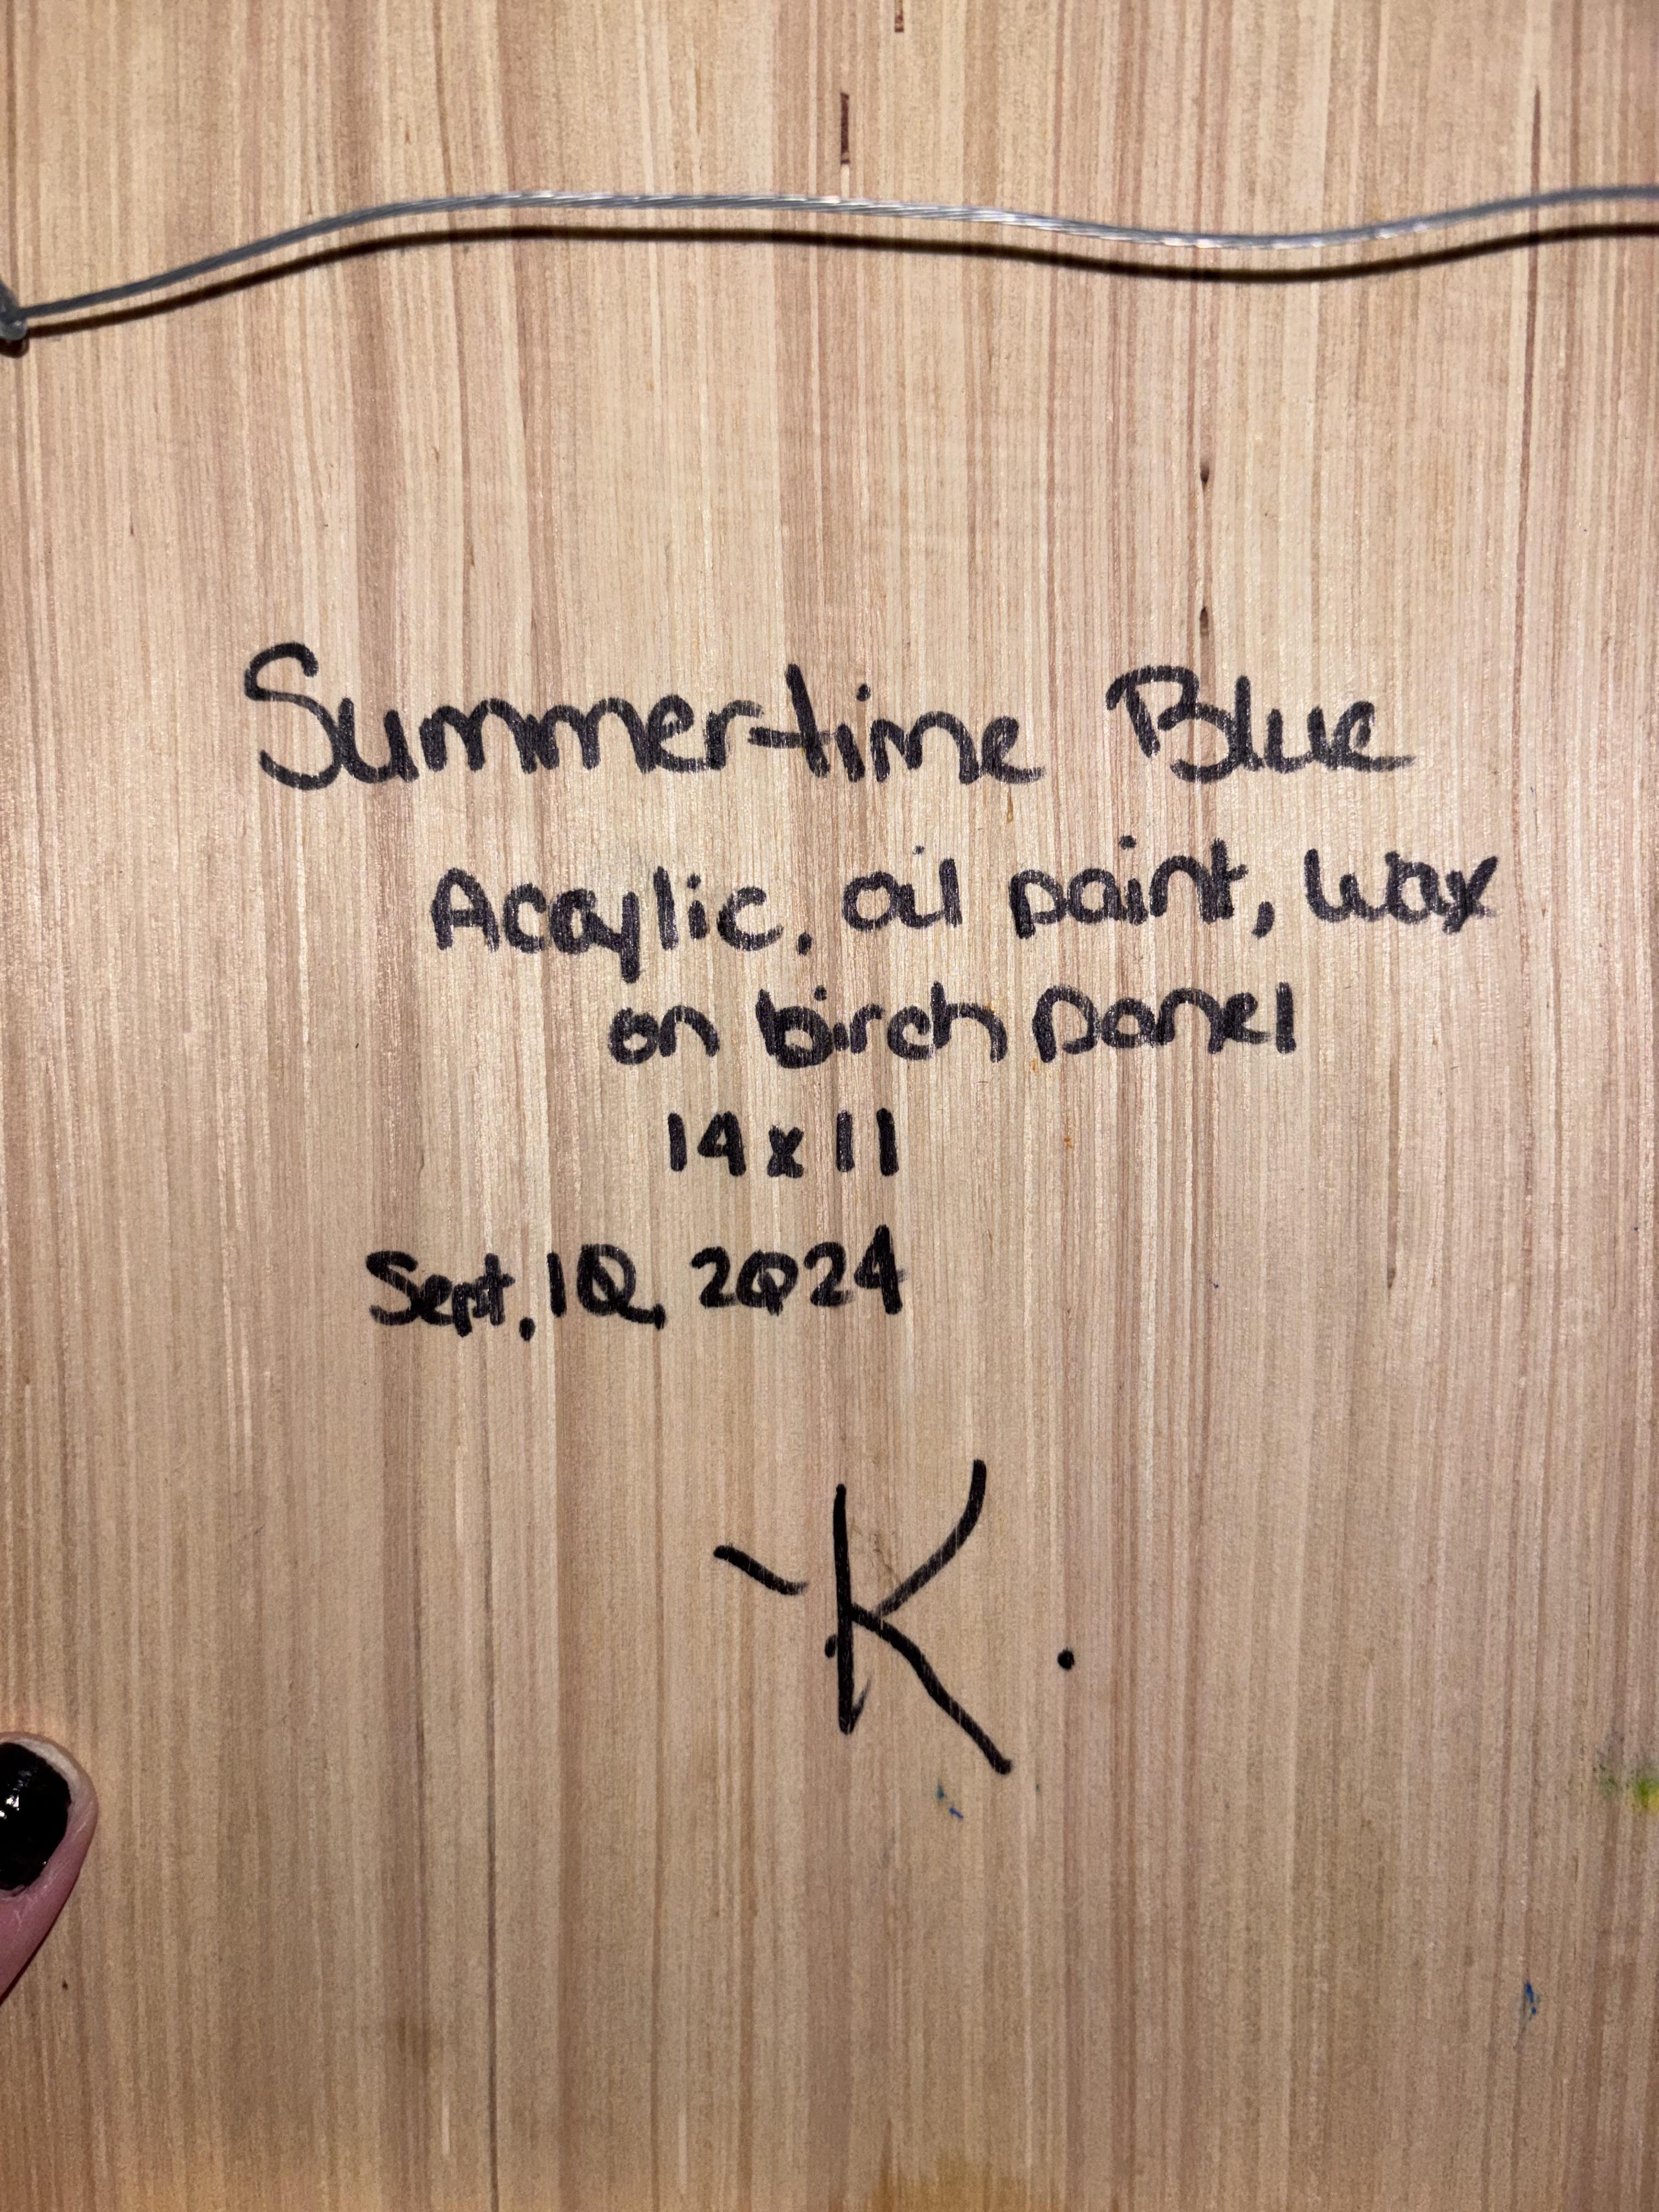 Summertime Blue
Acrylic, oil paint, wax
on birch panel
14x11
Sept. 10, 2024
K.